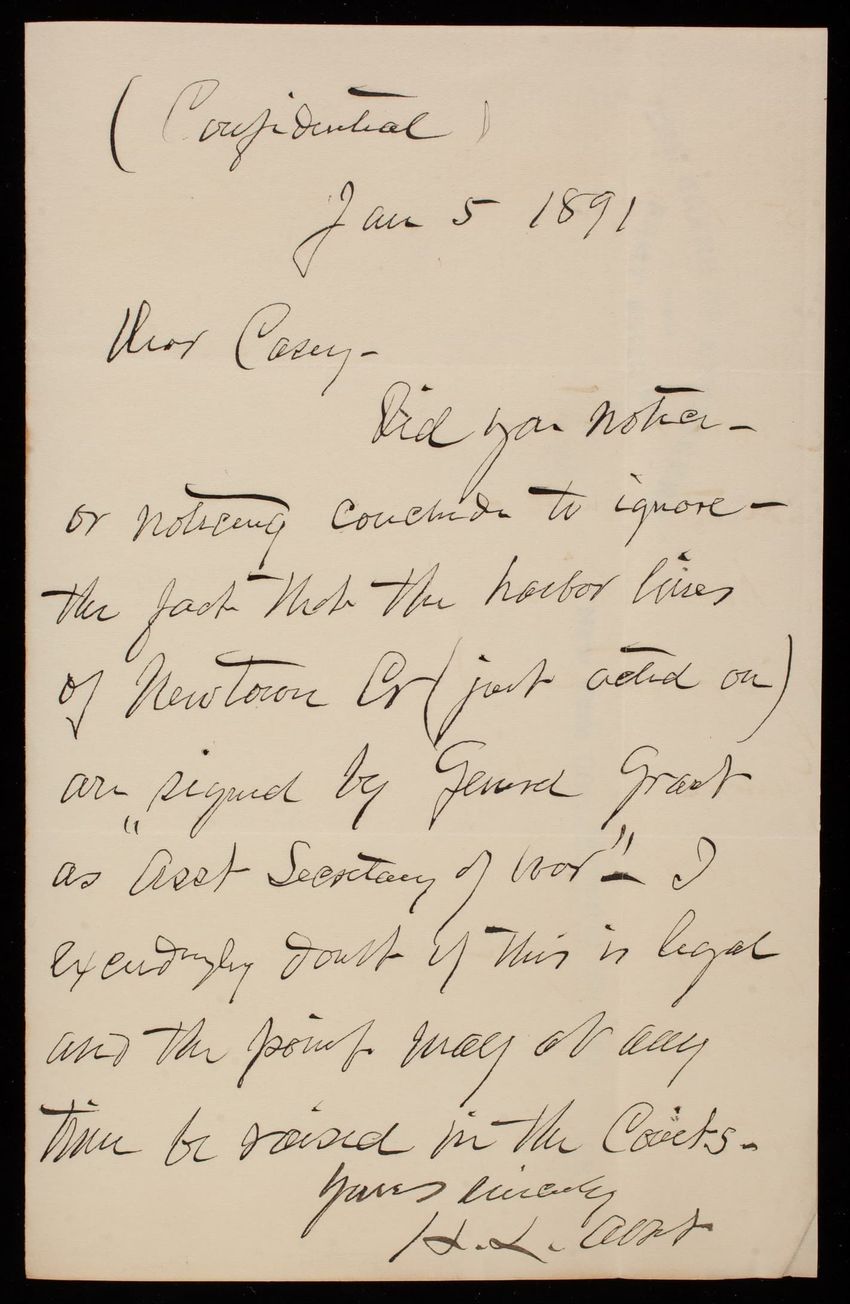 (Confidential)
Jan 5 1891
Dear Casey -
Did you notice -
or noticing conclude to ignore -
the fact that the harbor lines
of Newtown Cr (just acted on)
are signed by General Grant
as "Asst Secretary of War" - I
exceedingly doubt if this is legal
and the point may at any
time be raised in the Courts -
Yours sincerely
H. L. Abbot